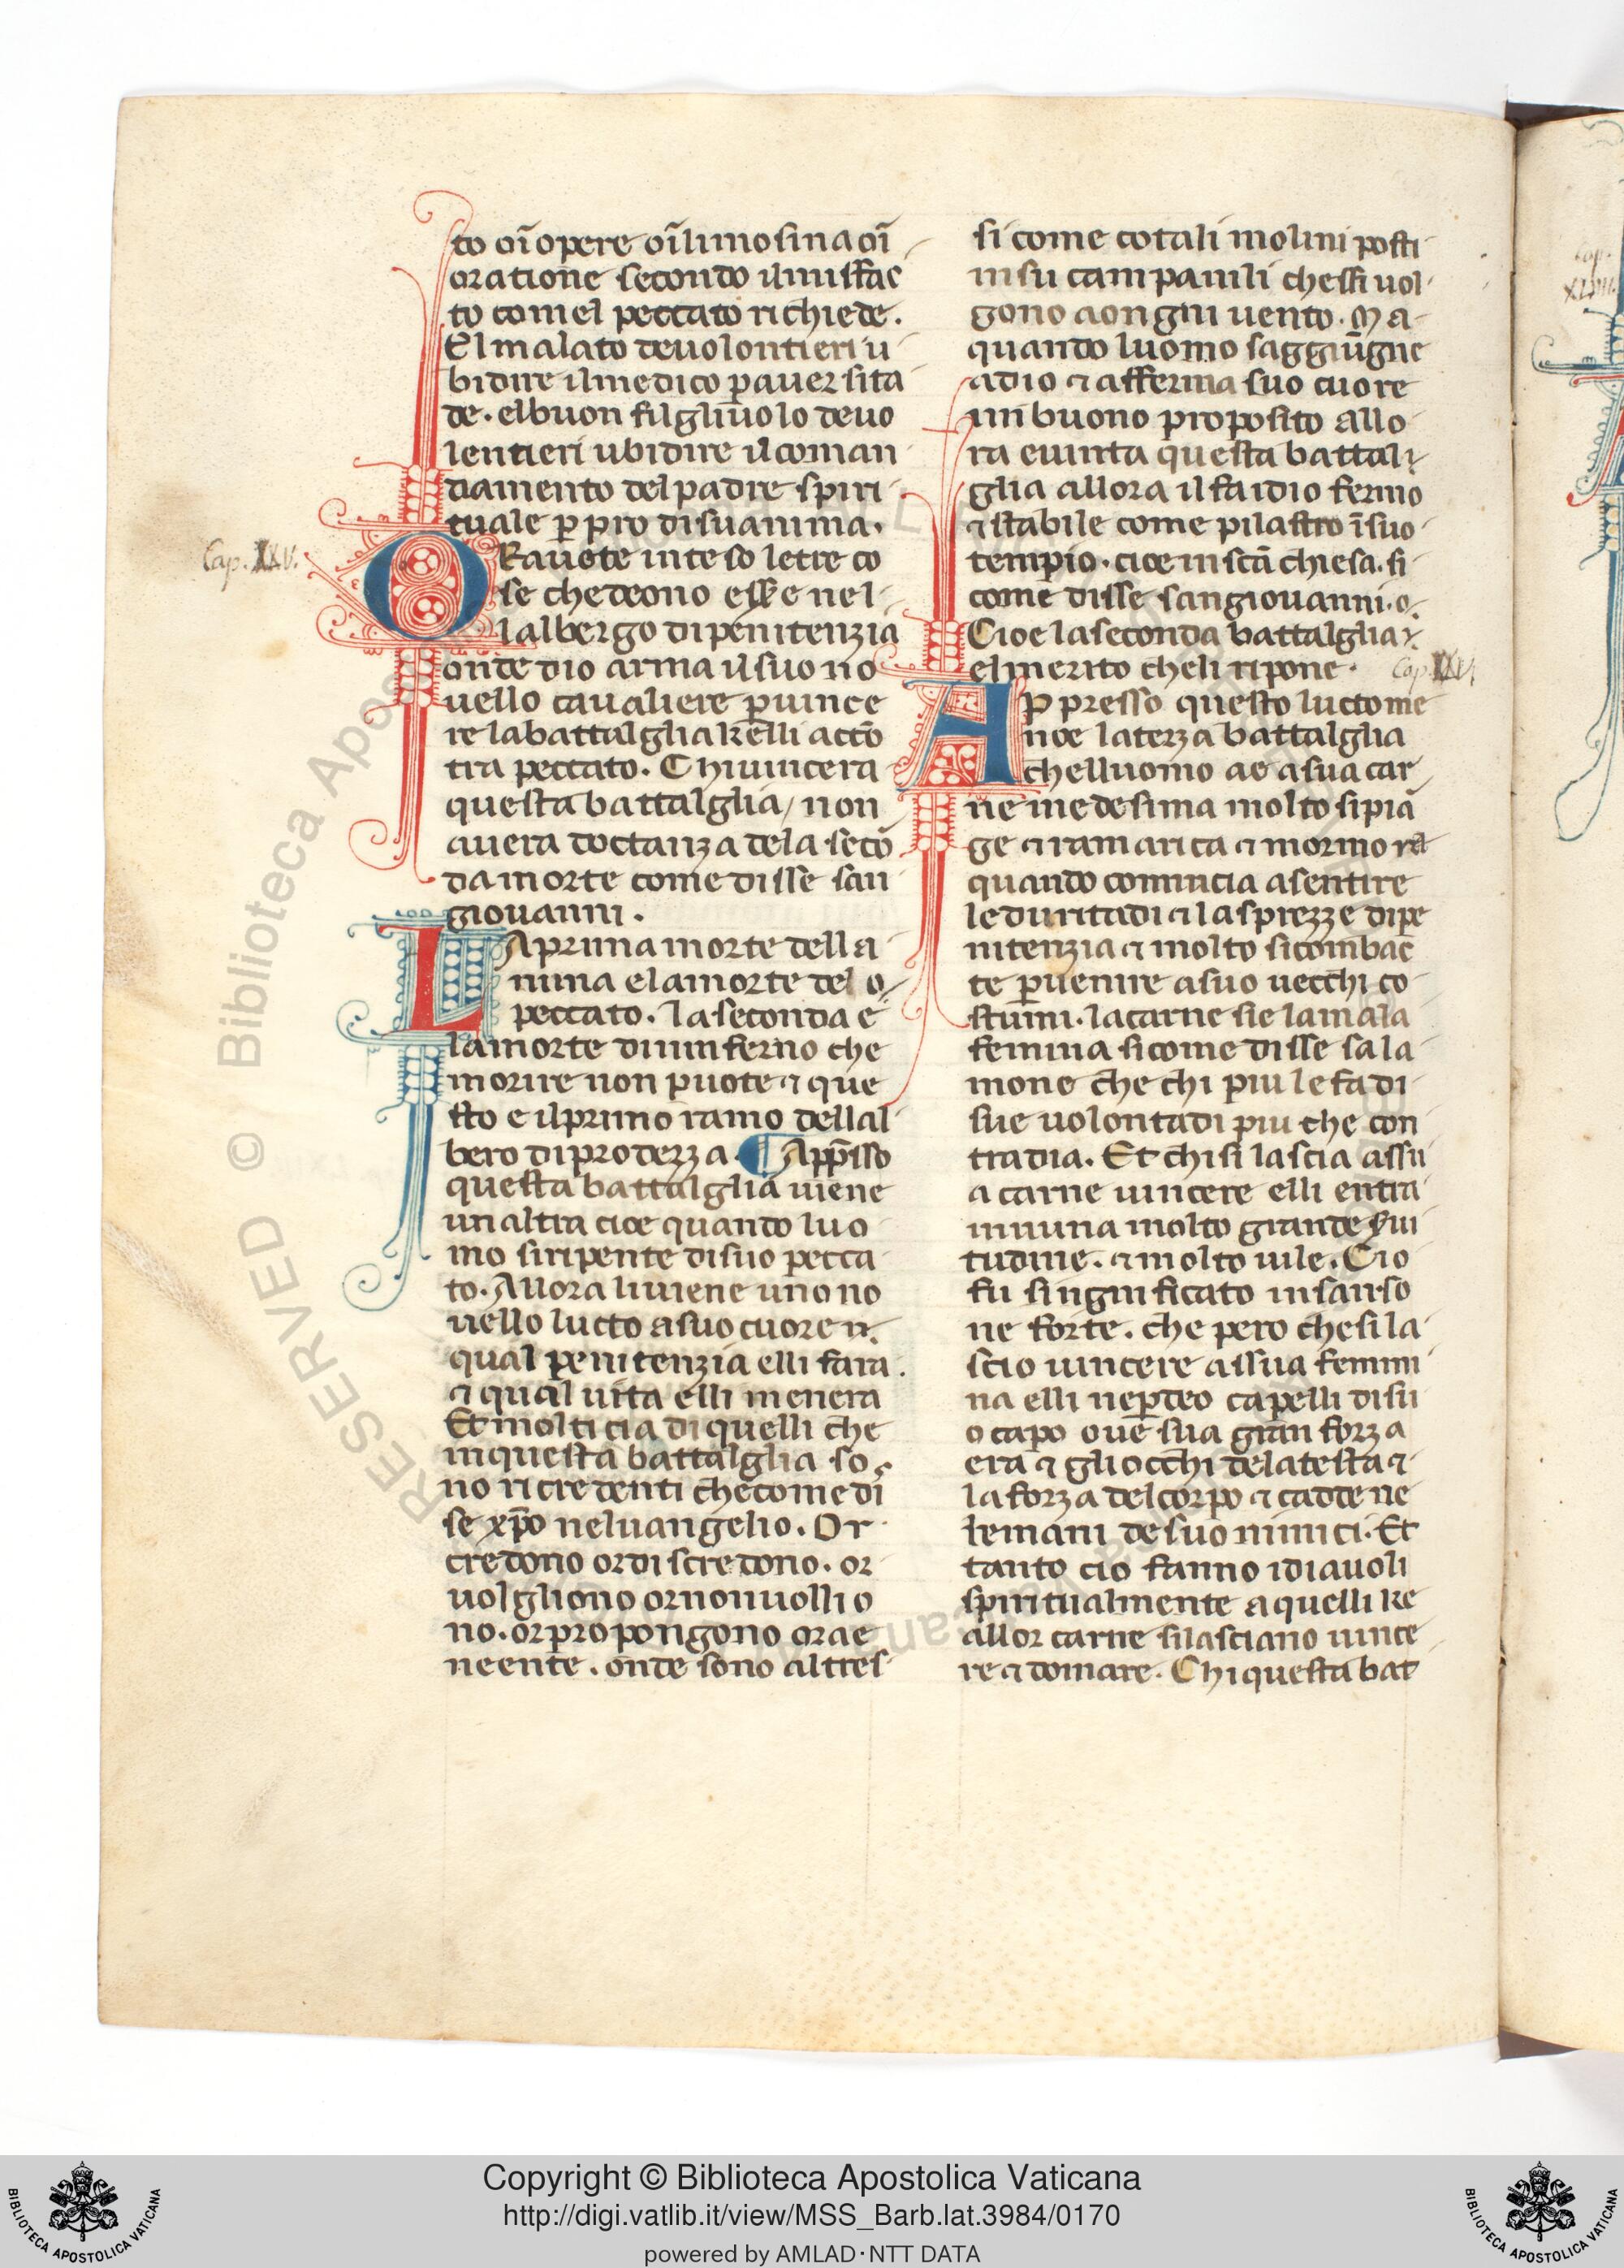 to oı̄ opere oı̄ limosina oı̄
oratione secondo ilmisfac
to comel peccato richiede.
El malato deuolontieri u
bidire ilmedico p̱ auer sita
de. elbuon filgliuolo deuo
lentieri ubidire il coman
damento del padre spiri
tuale p̱ pro disuanima.
Cap. XXV.
ORauote inteso letre co
se chedeono esse nel
lalbergo dipenitenzia
onde dio arma ilsuo no
uello caualiere p̱ uince
re labattalglia kelli a ctō
tra peccato. Chiuincera
questa battalglia/ non
auera doctanza dela secō
da morte come disse san
giouanni.
LA prima morte della
nima e lamorte del
peccato. la seconda e
lamorte dininferno che
morire non puote ⁊ que
sto e ilprimo ramo dellal
bero di prodezza. ¶ App̄sso
questa battalglia uiene
un altra cioe quando luo
mo siripente disuo pecca
to. Allora liuiene uno no
uello lucto asuo cuore ı̄.
qual penitenzia elli fara.
⁊ qual uita elli menera
Et molti cia di quelli che
inquesta battalglia so
no ricredenti checome di
se xp̄o neluangelio. Or
credono or discredono. or
uolgliono ornonuollio
no. or propongono or ae
neente. onde sono altres
si come cotali molini posti
insu campanili chessi uol
gono aongni uento. Ma
quando luomo saggiūgne
adio ⁊ afferma suo cuore
ini buono proposito allo
ra euinta questa battali
glia allora il fa idio fermo
⁊ stabile come pilastro ı̄ suo
tempio. cioe in scā chiesa. si
come disse sangiouanni.
Cioe laseconda battalglia ⁊
elmerito cheli ripone.
Cap. XXVI
AP presso questo lucto me
noe laterza battalglia
chelluomo ae a sua car
ne medesima molto si piā
ge ⁊ ramarica ⁊ mormora
quando comincia asentire
le duritadi ⁊ lasprezze dipe
nitenzia ⁊ molto sicombac
te p̱ uenire asuo uecchi co
stumi. la carne sie lamala
femina sicome disse sala
mone che chi piu le fa di
sue uolontadi piu the con
tradia. Et chi si lascia assu
a carne uincere elli entra
innuna molto grande sui
tudine. ⁊ molto uile. Cio
fu singnificato insanso
ne forte. che pero chesi la
scio uincere assua femmi
na elli nep̱deo capelli disu
o capo oue sua gran forza
era ⁊ gli occhi delatesta ⁊
la forza del corpo ⁊ cadde ne
lemani de suo nimici. Et
tanto cio fanno idiauoli
spiritualmente aquelli ke
allor carne silasciano uince
re ⁊ domare. Chi questa bat
Cap.
XLVII.
Copyright © Biblioteca Apostolica Vaticana
http://digi.vatlib.it/view/MSS_Barb.lat.3984/0170
powered by AMLAD·NTT DATA
BIBLIOTECA APOSTOLICA VATICANA
BIBLIOTECA APOSTOLICA VATICANA